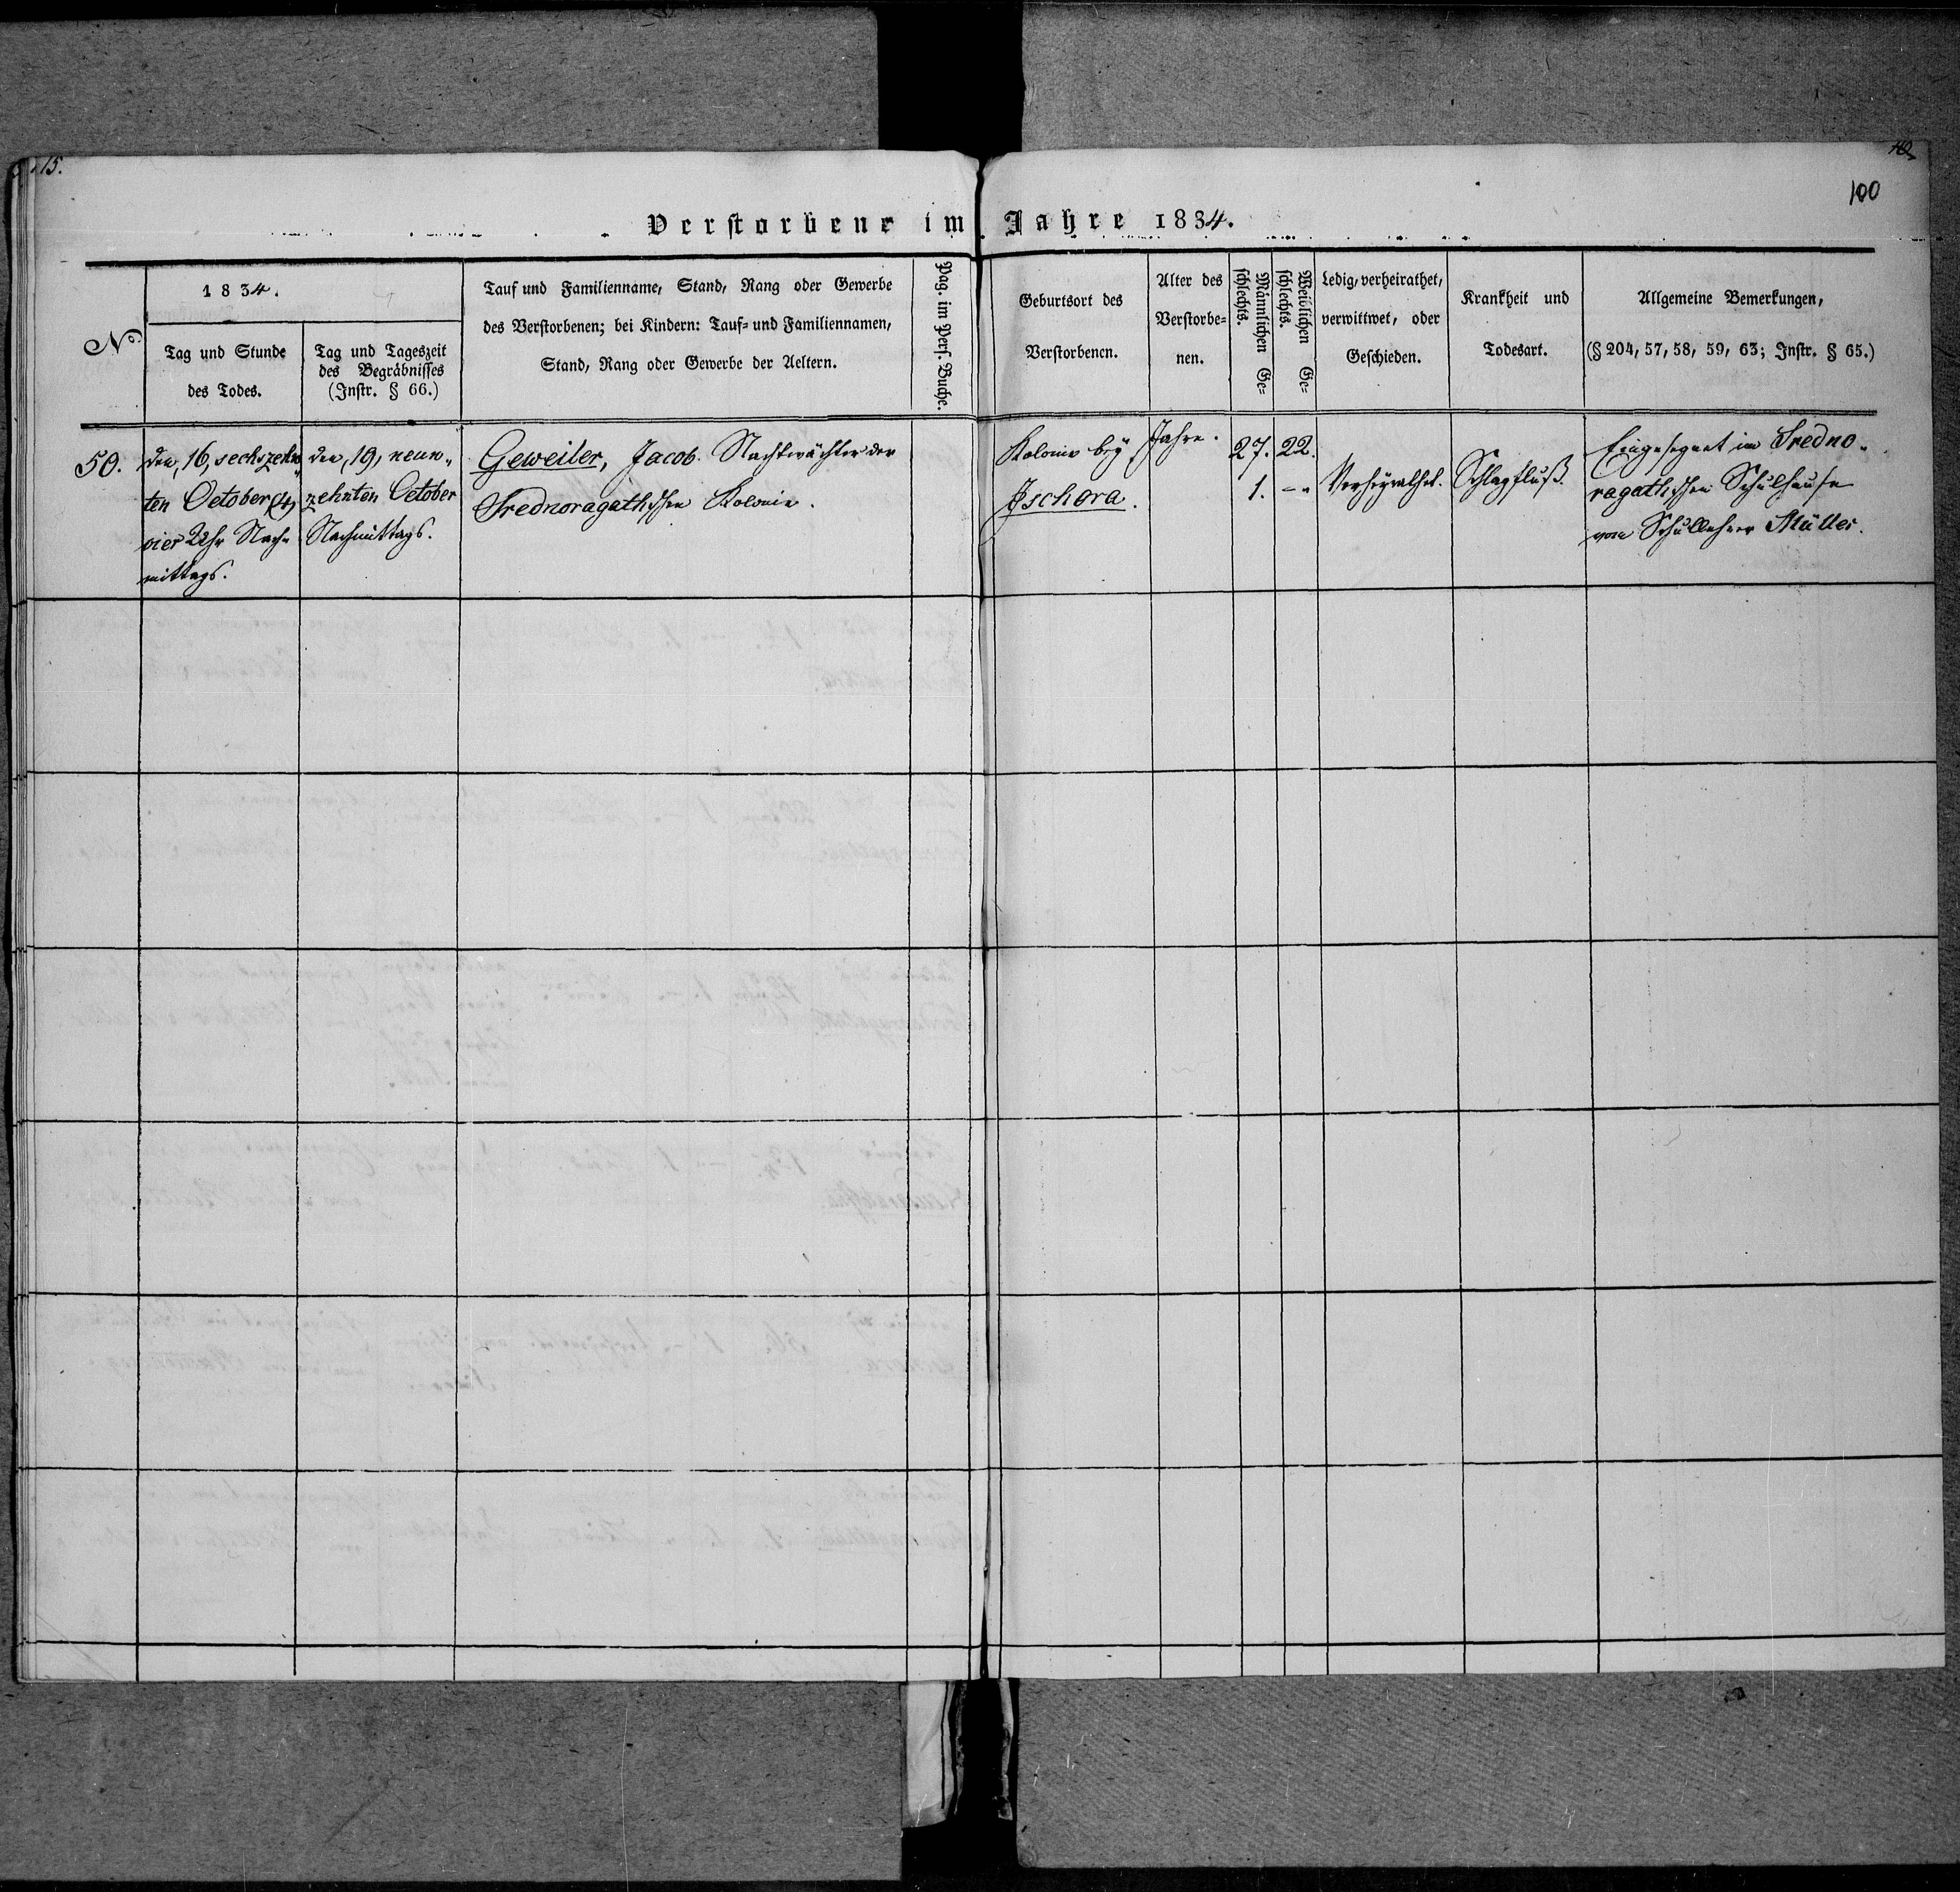 15.
100
Verstorbene im Jahre 1834.
No
1834.
Tag und Stunde
des Todes.
Tag und Tageszeit
des Begräbnisses
(Instr. § 66.)
Tauf und Familienname, Stand, Rang oder Gewerbe
des Verstorbenen; bei Kindern: Tauf- und Familiennamen,
Stand, Rang oder Gewerbe der Aeltern.
Pag. im Pers. Buche.
Geburtsort des
Verstorbenen.
Alter des
Verstorbe-
nen.
Männlichen Ge-
schlechts.
Weiblichen Ge-
schlechts.
Ledig, verheirathet,
verwittwet, oder
Geschieden.
Krankheit und
Todesart.
Allgemeine Bemerkungen,
(§ 204, 57, 58, 59, 63; Instr. § 65.)
50.
den, 16, sechszehn
ten October (4)
vier Uhr Nach-
mittags.
den, 19, neun-
zehnten October
Nachmittags.
Geweiler, Jacob. Nachtwächter der
Srednoragathschen Kolonie.
Kolonie bey
Ischora.
Jahre.
27. 22.
1. --
Verheyrathet.
Schlagfluß.
Eingesegnet im Sredno-
ragathschen Schulhause
vom Schullehrer Müller.